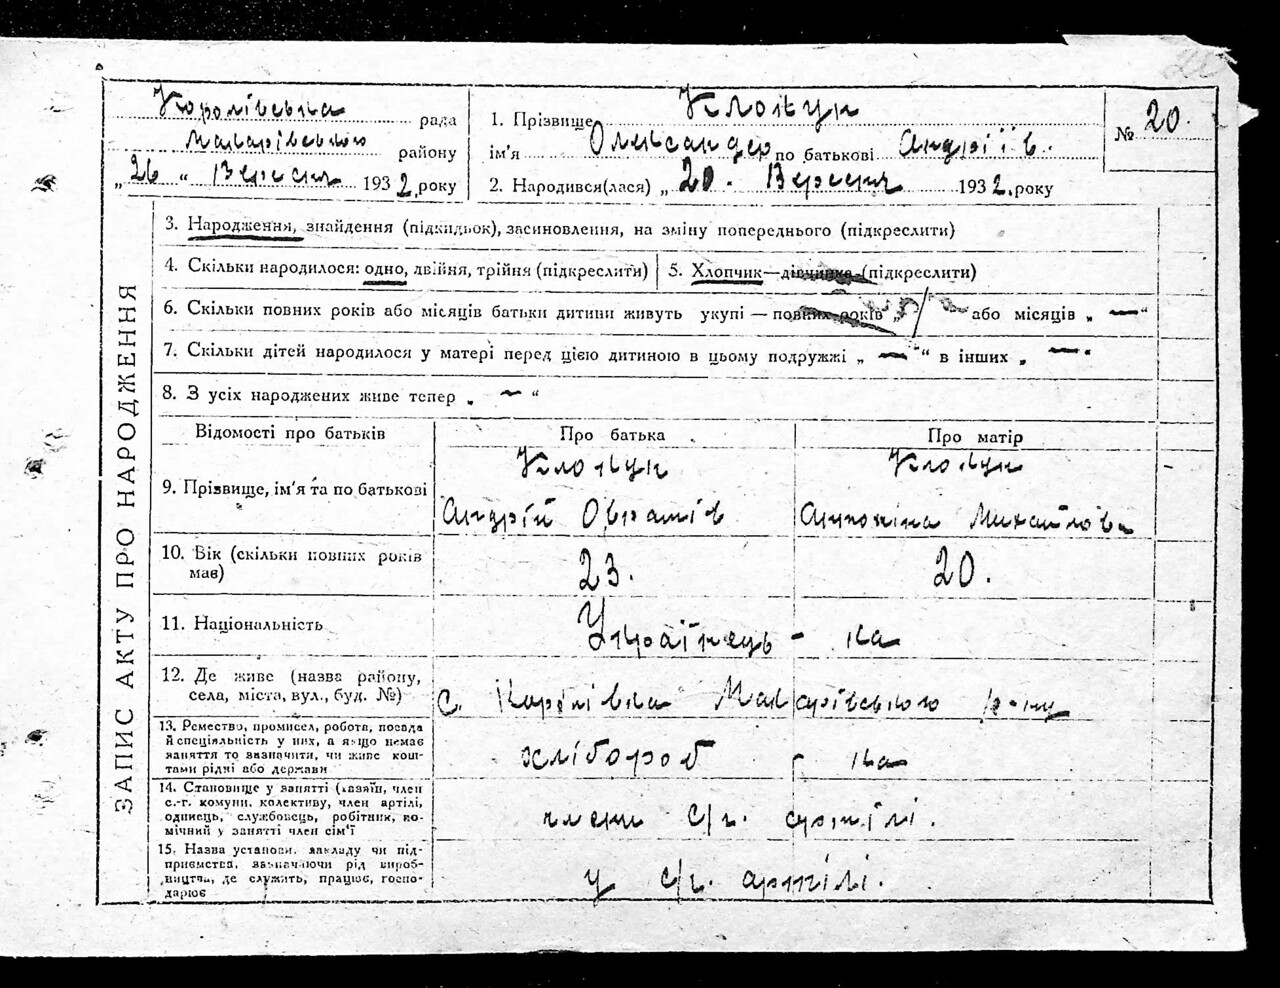 Королівська рада
Макарівського району
„26“ Вересня 1932 року
1. Прізвище
ім'я Олександр по батькові Андріїв.
2. Народився(лася) „20. Вересня 1932. року
№ 20.
ЗАПИС АКТУ ПРО НАРОДЖЕННЯ
3. Народження, знайдення (підкидьок), засиновлення, на зміну попереднього (підкреслити)
4. Скільки народилося: одно, двійня, трійня (підкреслити)
5. Хлопчик—дівчинка (підкреслити)
6. Скільки повних років або місяців батьки дитини живуть укупі — повних років „ або місяців „ — “
7. Скільки дітей народилося у матері перед цією дитиною в цьому подружжі „ — “ в інших „ — “
8. З усіх народжених живе тепер „ — “
Відомості про батьків
Про батька
Про матір
9. Прізвище, ім'я та по батькові
Андрій Аврамів
Антоніна Михайлівна
10. Вік (скільки повних років
має)
23.
20.
11. Національність
Українець - ка
12. Де живе (назва району,
села, міста, вул., буд. №)
с. Королівка Макарівського р-ну
13. Ремество, промисел, робота, посада
й спеціяльність у них, а якщо немає
заняття то зазначити, чи живе кош-
тами рідні або держави
хлібороб - ка
14. Становище у занятті (хазяїн, член
с.-г. комуни, колективу, член артілі,
одинець, службовець, робітник, по-
мічний у занятті член сім'ї
члени с/г. артілі.
15. Назва установи, закладу чи під-
приємства, зазначаючи рід вироб-
ництва, де служить, працює, госпо-
дарює
у с/г. артілі.